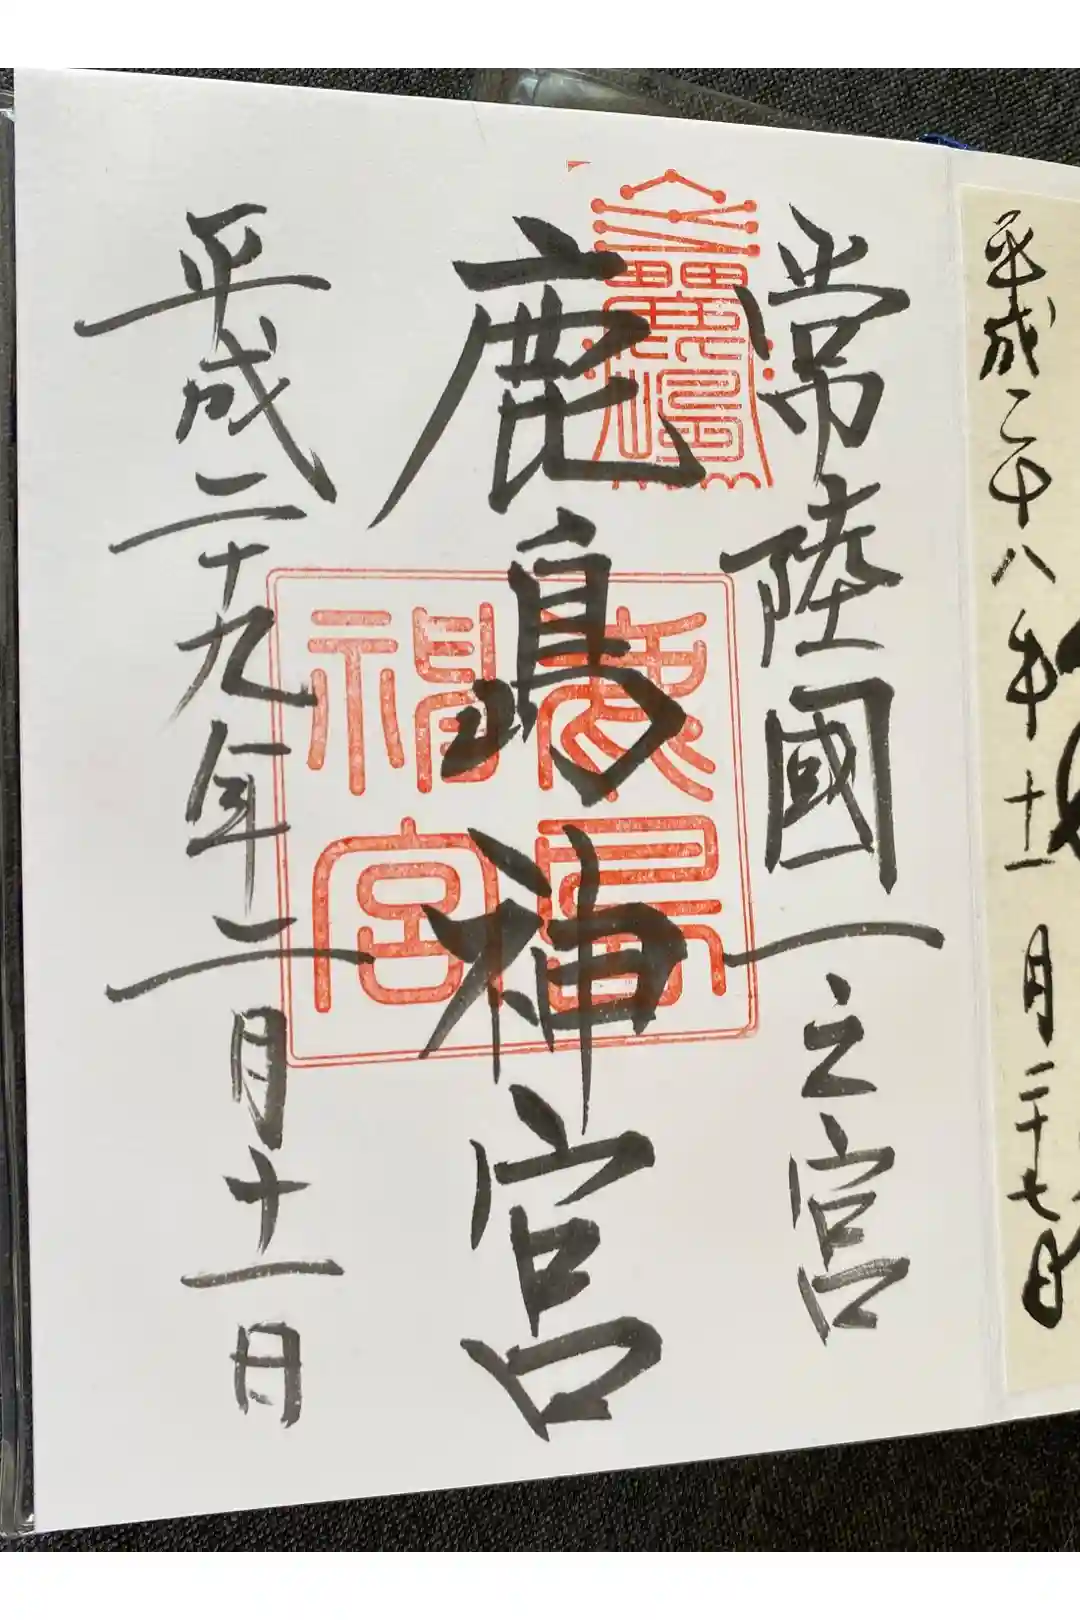 平成二十八年十一月二十七日
常陸國一之宮
鹿島神宮
平成二十九年二月十一日
鹿島
神宮